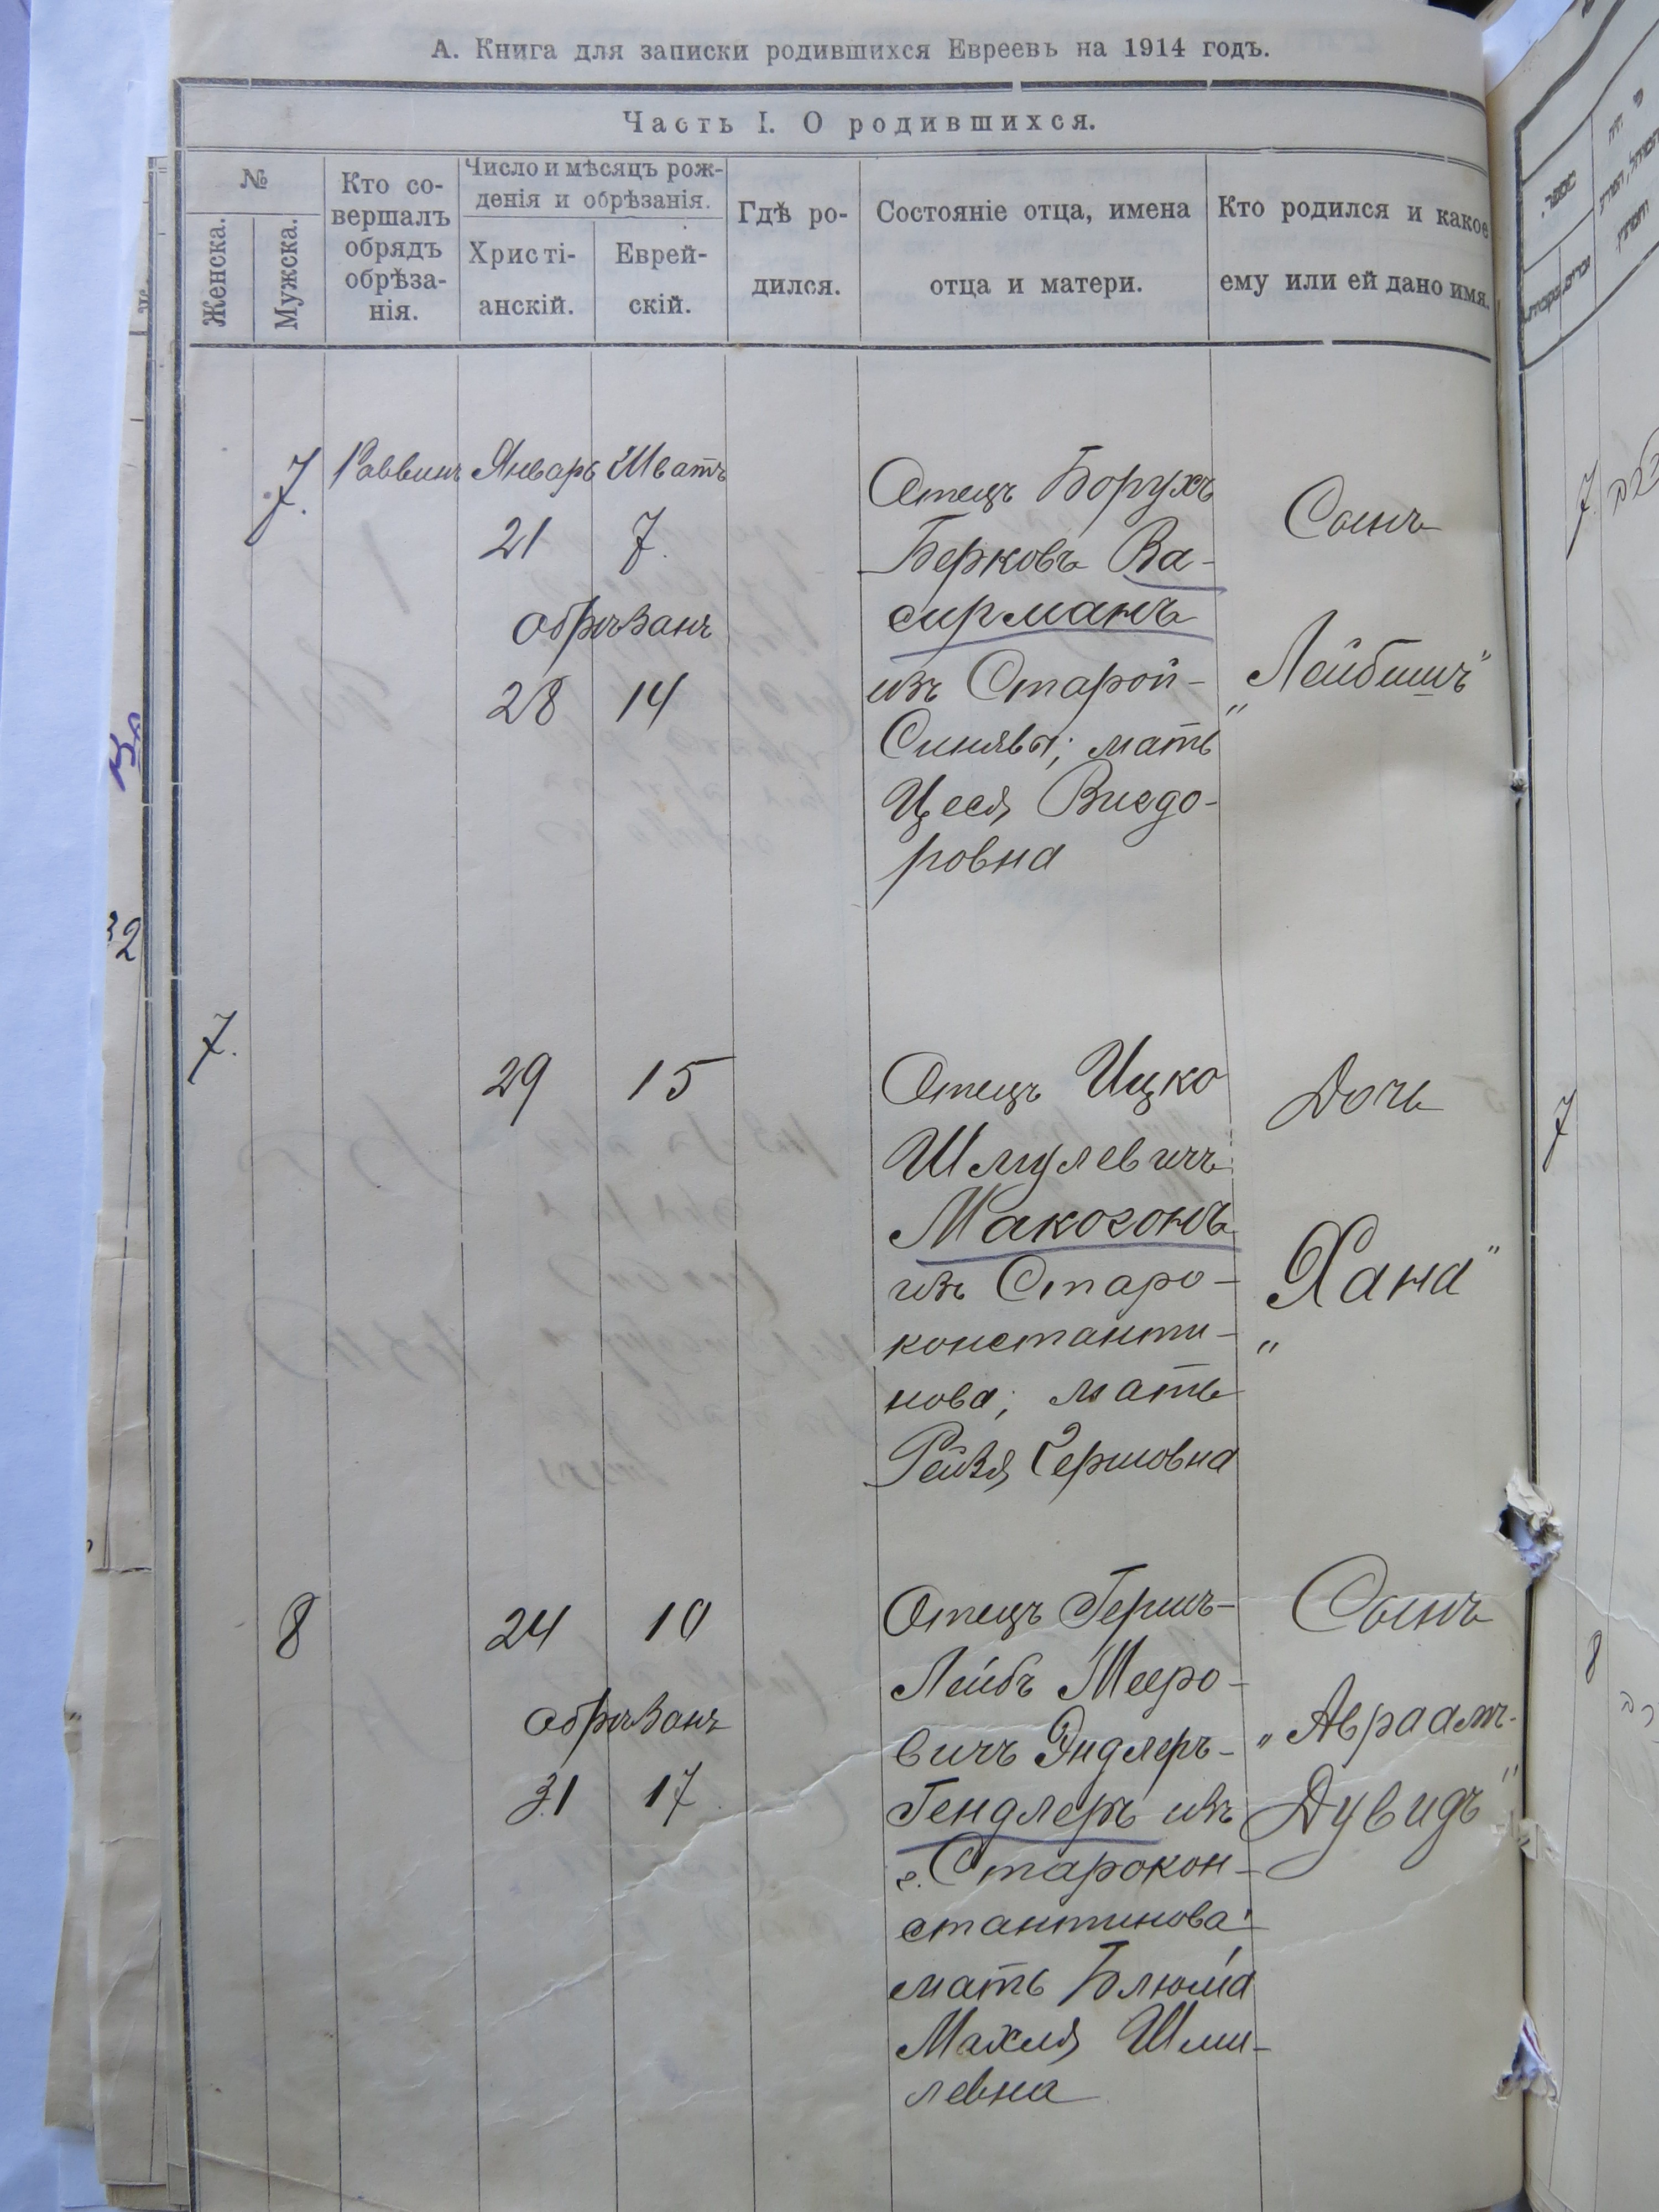 А. Книга для записки родившихся Евреевъ на 1914 годъ.
Часть I. О родившихся.
№
Женска.
Мужска.
Кто со-
вершалъ
обрядъ
обрѣза-
нія.
Число и мѣсяцъ рож-
денія и обрѣзанія.
Христі-
анскій.
Еврей-
скій.
Гдѣ ро-
дился.
Состояніе отца, имена
отца и матери.
Кто родился и какое
ему или ей дано имя.
7. Раввинъ Январь Шватъ
21 7.
обрѣзанъ
28 14
Отецъ Борухъ
Берковъ Ва-
сирманъ
изъ Старой-
Синявы; мать
Цеся Вигдо-
ровна
Сынъ
„Лейбишъ"
7.
29 15
Отецъ Ицко
Шмулевичъ
Макогонъ
изъ Старо-
константи-
нова; мать
Рейзя Гершовна
Дочь
„Хана"
8
24 10
обрѣзанъ
31 17
Отецъ Гершъ-
Лейбъ Мееро-
вичъ Эндлеръ-
Гендлеръ изъ
г. Старокон-
стантинова;
мать Блюма
Махля Шми-
левна
Сынъ
„Авраамъ-
Дувидъ"
32
7
7
8